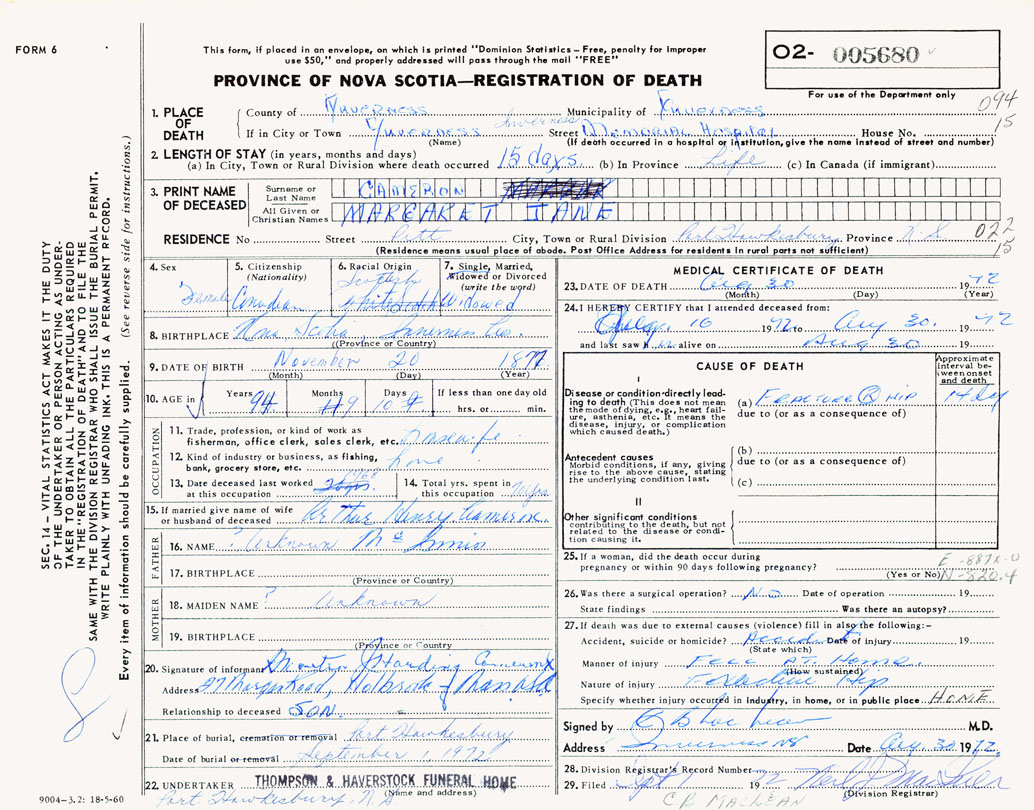 FORM 6
This form, if placed in an envelope, on which is printed "Dominion Statistics – Free, penalty for improper
use $50," and properly addressed will pass through the mail "FREE"
PROVINCE OF NOVA SCOTIA—REGISTRATION OF DEATH
O2- 005680
For use of the Department only
094
15
1. PLACE OF DEATH
County of Inverness Municipality of Inverness
If in City or Town Inverness Street Inverness Memorial Hospital House No.
(Name) (If death occurred in a hospital or institution, give the name instead of street and number)
2. LENGTH OF STAY (in years, months and days)
(a) In City, Town or Rural Division where death occurred 15 days (b) In Province Life (c) In Canada (if immigrant)
3. PRINT NAME OF DECEASED
Surname or Last Name CAMERON
All Given or Christian Names MARGARET JANE
RESIDENCE No Street Pitt City, Town or Rural Division Port Hawkesbury Province N.S
022
15
(Residence means usual place of abode. Post Office Address for residents in rural parts not sufficient)
4. Sex Female
5. Citizenship (Nationality) Canadian
6. Racial Origin Scottish
7. Single, Married, Widowed or Divorced (write the word) Widowed
8. BIRTHPLACE Nova Scotia
(Province or Country)
9. DATE OF BIRTH November 20 1877
(Month) (Day) (Year)
10. AGE in Years 94 Months 9 Days 10 If less than one day old
hrs. or min.
OCCUPATION
11. Trade, profession, or kind of work as
fisherman, office clerk, sales clerk, etc.
12. Kind of industry or business, as fishing,
bank, grocery store, etc. home
13. Date deceased last worked
at this occupation 1968
14. Total yrs. spent in
this occupation
15. If married give name of wife
or husband of deceased Arthur Henry Cameron
FATHER
16. NAME ? Unknown McInnis
17. BIRTHPLACE
(Province or Country)
MOTHER
18. MAIDEN NAME ? Unknown
19. BIRTHPLACE
(Province or Country)
20. Signature of informant Harding Cameron
Address 27 Road, Holbrook
Relationship to deceased SON.
21. Place of burial, cremation or removal Port Hawkesbury
Date of burial or removal September 1, 1972
22. UNDERTAKER THOMPSON & HAVERSTOCK FUNERAL HOME
(Name and address)
Port Hawkesbury, N.S
9004-3.2: 18-5-60
MEDICAL CERTIFICATE OF DEATH
23. DATE OF DEATH Aug 30 1972
(Month) (Day) (Year)
24. I HEREBY CERTIFY that I attended deceased from:
16 1972 to Aug 30. 1972
and last saw h alive on Aug 30 19
CAUSE OF DEATH
Approximate interval between onset and death
I
Disease or condition directly leading to death (This does not mean the mode of dying, e.g., heart failure, asthenia, etc. It means the disease, injury, or complication which caused death.)
(a) FRACTURE R HIP 14 day
due to (or as a consequence of)
Antecedent causes
Morbid conditions, if any, giving rise to the above cause, stating the underlying condition last.
(b)
due to (or as a consequence of)
(c)
II
Other significant conditions
contributing to the death, but not related to the disease or condition causing it.
25. If a woman, did the death occur during
pregnancy or within 90 days following pregnancy?
(Yes or No)
E-887X-0
N-820.4
26. Was there a surgical operation? NO Date of operation 19
State findings Was there an autopsy?
27. If death was due to external causes (violence) fill in also the following:-
Accident, suicide or homicide? Accident Date of injury 19
(State which)
Manner of injury FELL AT HOME.
(How sustained)
Nature of injury Fracture Hip
Specify whether injury occurred in industry, in home, or in public place HOME
Signed by M.D.
Address Inverness NS Date Aug 30 1972
28. Division Registrar's Record Number
29. Filed Sept 72
(Division Registrar)
C.B. MACLEAN
SEC. 14 – VITAL STATISTICS ACT MAKES IT THE DUTY
OF THE UNDERTAKER OR PERSON ACTING AS UNDER-
TAKER TO OBTAIN ALL THE PARTICULARS REQUIRED
IN THE "REGISTRATION OF DEATH" AND TO FILE THE
SAME WITH THE DIVISION REGISTRAR WHO SHALL ISSUE THE BURIAL PERMIT.
WRITE PLAINLY WITH UNFADING INK. THIS IS A PERMANENT RECORD.
Every item of information should be carefully supplied. (See reverse side for instructions.)